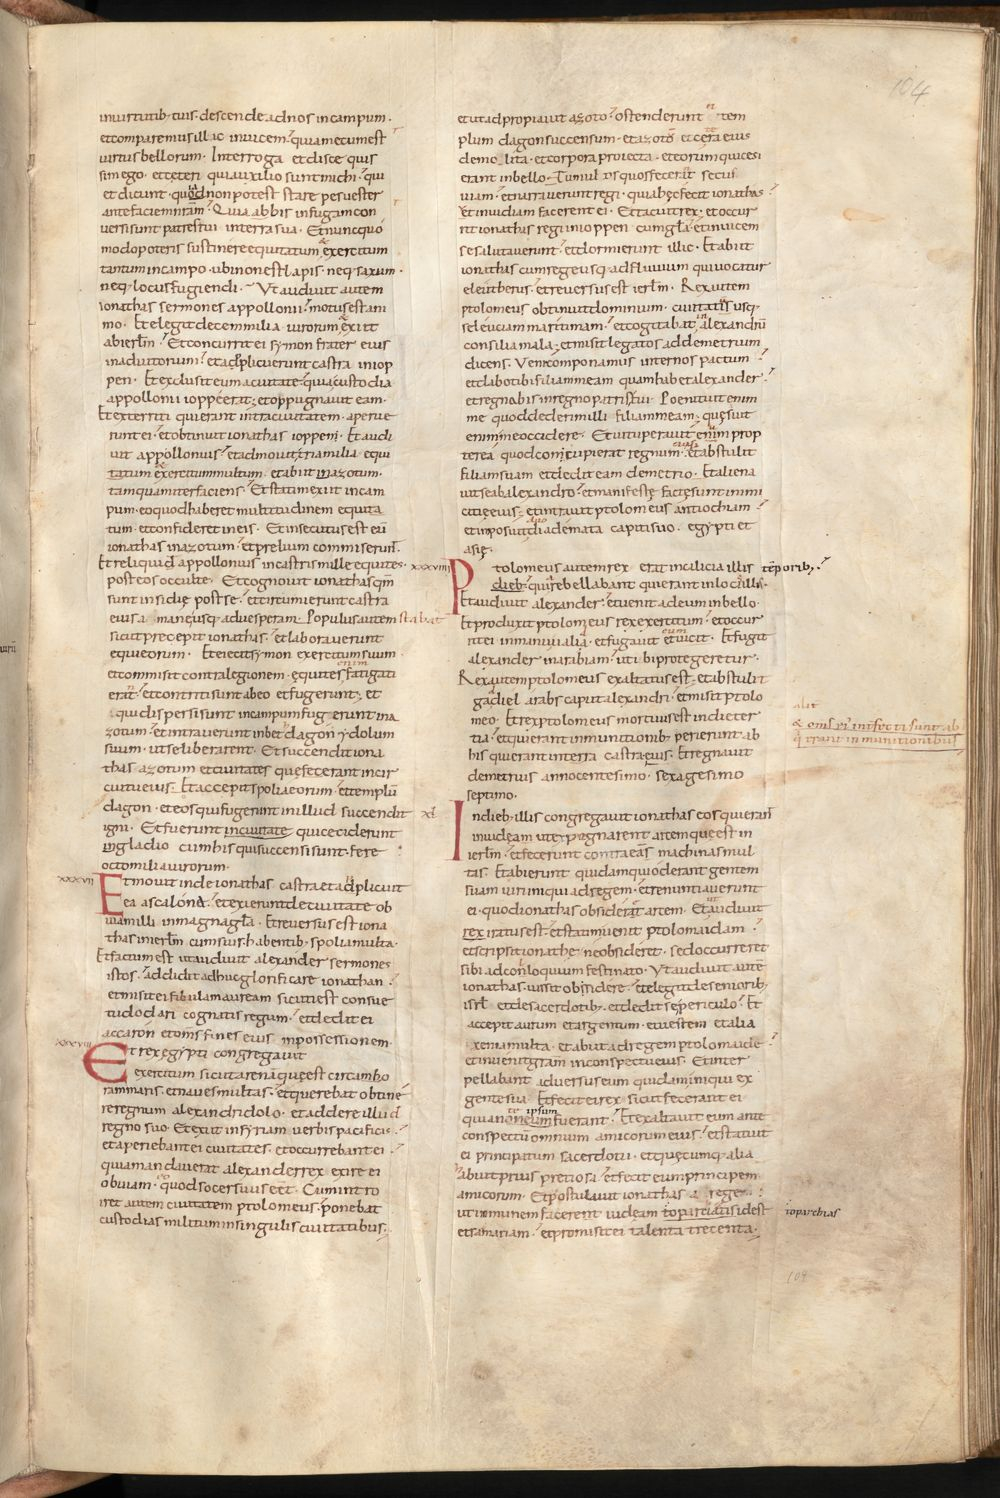 104
in uirtutib; tuis. descende ad nos in campum.
et comparemus illic inuicem. quia mecum est
uirtus bellorum. Interroga et disce quis
sim ego. et ceteri qui auxilio sunt michi. qui
et dicunt. quod non potest stare pes uester
ante faciem nr̄am. Quia bis in fugam con
uersi sunt patres tui in terra sua. Et nunc quō
modo poteris sustinere equitatum et exercitum
tantum in campo. ubi non est lapis. neq; saxum.
neq; locus fugiendi. Vt audiuit autem
ionathas sermones appollonii. motus est ani
mo. Et elegit decem milia uirorum et exiit
ab ierlm̄. Et concurrit ei symon frater eius
in adiutorium. et adplicuerunt castra in iop
pen. Et exclusit eum a ciuitate. quia custodia
appollonii ioppe erat. et oppugnauit eam.
Et exterriti qui erant intra ciuitatem. aperue
runt ei. et obtinuit ionathas ioppen. Et audi
uit appollonius. et admouit tria milia equi
tatum et exercitum multum. et abiit in azotum.
tamquam iter faciens. Et statim exiit in cam
pum. eo quod haberet multitudinem equita
tum. et confideret in eis. Et insecutus est eū
ionathas in azotum. et prelium commiserunt̄.
Et reliquid appollonius in castris mille equites.
post eos occulte. Et cognouit ionathas qm̄
sunt insidię post se. et circumierunt castra
eius a mane usq; ad uesperam. Populus autem stabat
sicut precepit ionathas. et laborauerunt
equi eorum. Et eiecit symon exercitum suum.
et commisit contra legionem. equites enim fatigati
erant. et contriti sunt ab eo et fugerunt. et
qui dispersi sunt in campum fugerunt in a
zotum. et intrauerunt in bet dagon ydolum
suum. ut se liberarent. Et succendit iona
thas azotum et ciuitates que fecerant in cir
cuitu eius. Et accepit spolia eorum. et templū
dagon. et eos qui fugerunt in illud succendit
igni. Et fuerunt in ciuitate qui ceciderunt
in gladio cum his qui succensi sunt. fere
octo milia uirorum.
xxxvii Et mouit inde ionathas castra et adplicuit
ea ascalonē. et exierunt de ciuitate ob
uiam illi in magna gl̄a. Et reuersus est iona
thas in ierlm̄ cum suis. habentib; spolia multa.
Et factum est ut audiuit alexander sermones
istos. addidit adhuc glorificare ionathan.
et misit ei fibulam auream sicuti est consue
tudo dari cognatis regum. et dedit ei
accaron et omīs fines eius in possessionem.
xxxviii Et rex egypti congregauit
exercitum sicut arena quę est circa ho
ram maris. et naues multas. et querebat obtine
re regnum alexandri dolo. et addere illud
regno suo. Et exiit in syriam uerbis pacificis.
et aperiebant ei ciuitates. et occurrebant ei.
quia mandauerat alexander rex exire ei
obuiam. eo quod socer suus ess&. Cum intro
iret autem ciuitatem ptolomeus. ponebat
custodias militum in singulis ciuitatibus.
et ut adpropiauit azoto. ostenderunt ei tem
plum dagon succensum. et azotū et cetera eius
demolita. et corpora proiecta. et eorum qui cesi
erant in bello. Tumulos quos fecerat secus
uiam. et narrauerunt regi. quia hęc fecit ionathas.
et inuidiam facerent ei. Et tacuit rex. et occur
rit ionathas regi in ioppen cum gl̄a. et inuicem
se salutauerunt. et dormierunt illic. Et abiit
ionathas cum rege usq; ad fluuium qui uocatur
eleutherus. et reuersus est ierlm̄. Rex autem
ptolomeus obtinuit dominum ciuitatis usq;
seleuciam maritimam. et cogitabat in alexandrū
consilia mala. et misit legatos ad demetrium
dicens. Veni componamus inter nos pactum.
et dabo tibi filiam meam quam habet alexander.
et regnabis in regno patris tui. Poenituit enim
me quod dederim illi filiam meam. quęsiuit
enim me occidere. Et uituperauit eum prop
terea quod concupierat regnum eius. et abstulit
filiam suam et dedit eam demetrio. Et aliena
uit se ab alexandro. et manifestę factę sunt inimi
citię eius. et intrauit ptolomeus antiochiam.
et imposuit duo diademata capiti suo. egypti et
asię.
xxxviiii Ptolomeus autem rex erat in cilicia illis tēporib;.
dieb; quia rebellabant qui erant in locis illis.
Et audiuit alexander. et uenit ad eum in bello.
Et produxit ptolomeus rex exercitum. et occur
rit ei in manu ualida. et fugauit eum et uicit. Et fugit
alexander in arabiam. ut ibi protegeretur.
Rex autem ptolomeus exaltatus est. et abstulit
gadiel arabs caput alexandri. et misit ptolo
meo. Et rex ptolomeus mortuus est in die ter
tia. et qui erant in munitionib; perierunt ab
his qui erant intra castra eius. Et regnauit
demetrius anno centesimo. sexagesimo
septimo.
alit
& om̄s ei interfecti sunt ab
q̄ erant in munitionibus
xl In dieb; illis congregauit ionathas eos qui erant̄
in iudęam ut expugnarent artem que est in
ierlm̄. et fecerunt contra eās machinas mul
tas. Et abierunt quidam qui oderant gentem
suam uiri iniqui ad regem. et renuntiauerunt
ei. quod ionathas obsiderat artem. Et ut audiuit
rex iratus est. et statim uenit ptolomaidam.
et scripsit ionathe ne obsideret. sed occurreret
sibi ad conloquium festinato. Vt audiuit autē
ionathas. iussit obsidere. et elegit de seniorib;
isrl̄ et de sacerdotib;. et dedit se periculo. Et
accepit aurum et argentum. et uestem et alia
xenia multa. et abiit ad regem ptolomaidę.
et inuenit gr̄am in conspectu eius. Et inter
pellabant aduersus eum quidam iniqui ex
gente sua. Et fecit ei rex sicut fecerant ei
qui ante ipsum fuerant. Et exaltauit eum ante
conspectū omnium amicorum eius. et statuit
ei principatum sacerdotii. et quęcumq; alia
habuit prius pretiosa. et fecit eum principem
amicorum. Et postulauit ionathas a rege.
ut inmunem facerent iudęam toparciatis idest
toparchias
et samariam. et promisit ei talenta trecenta.
104